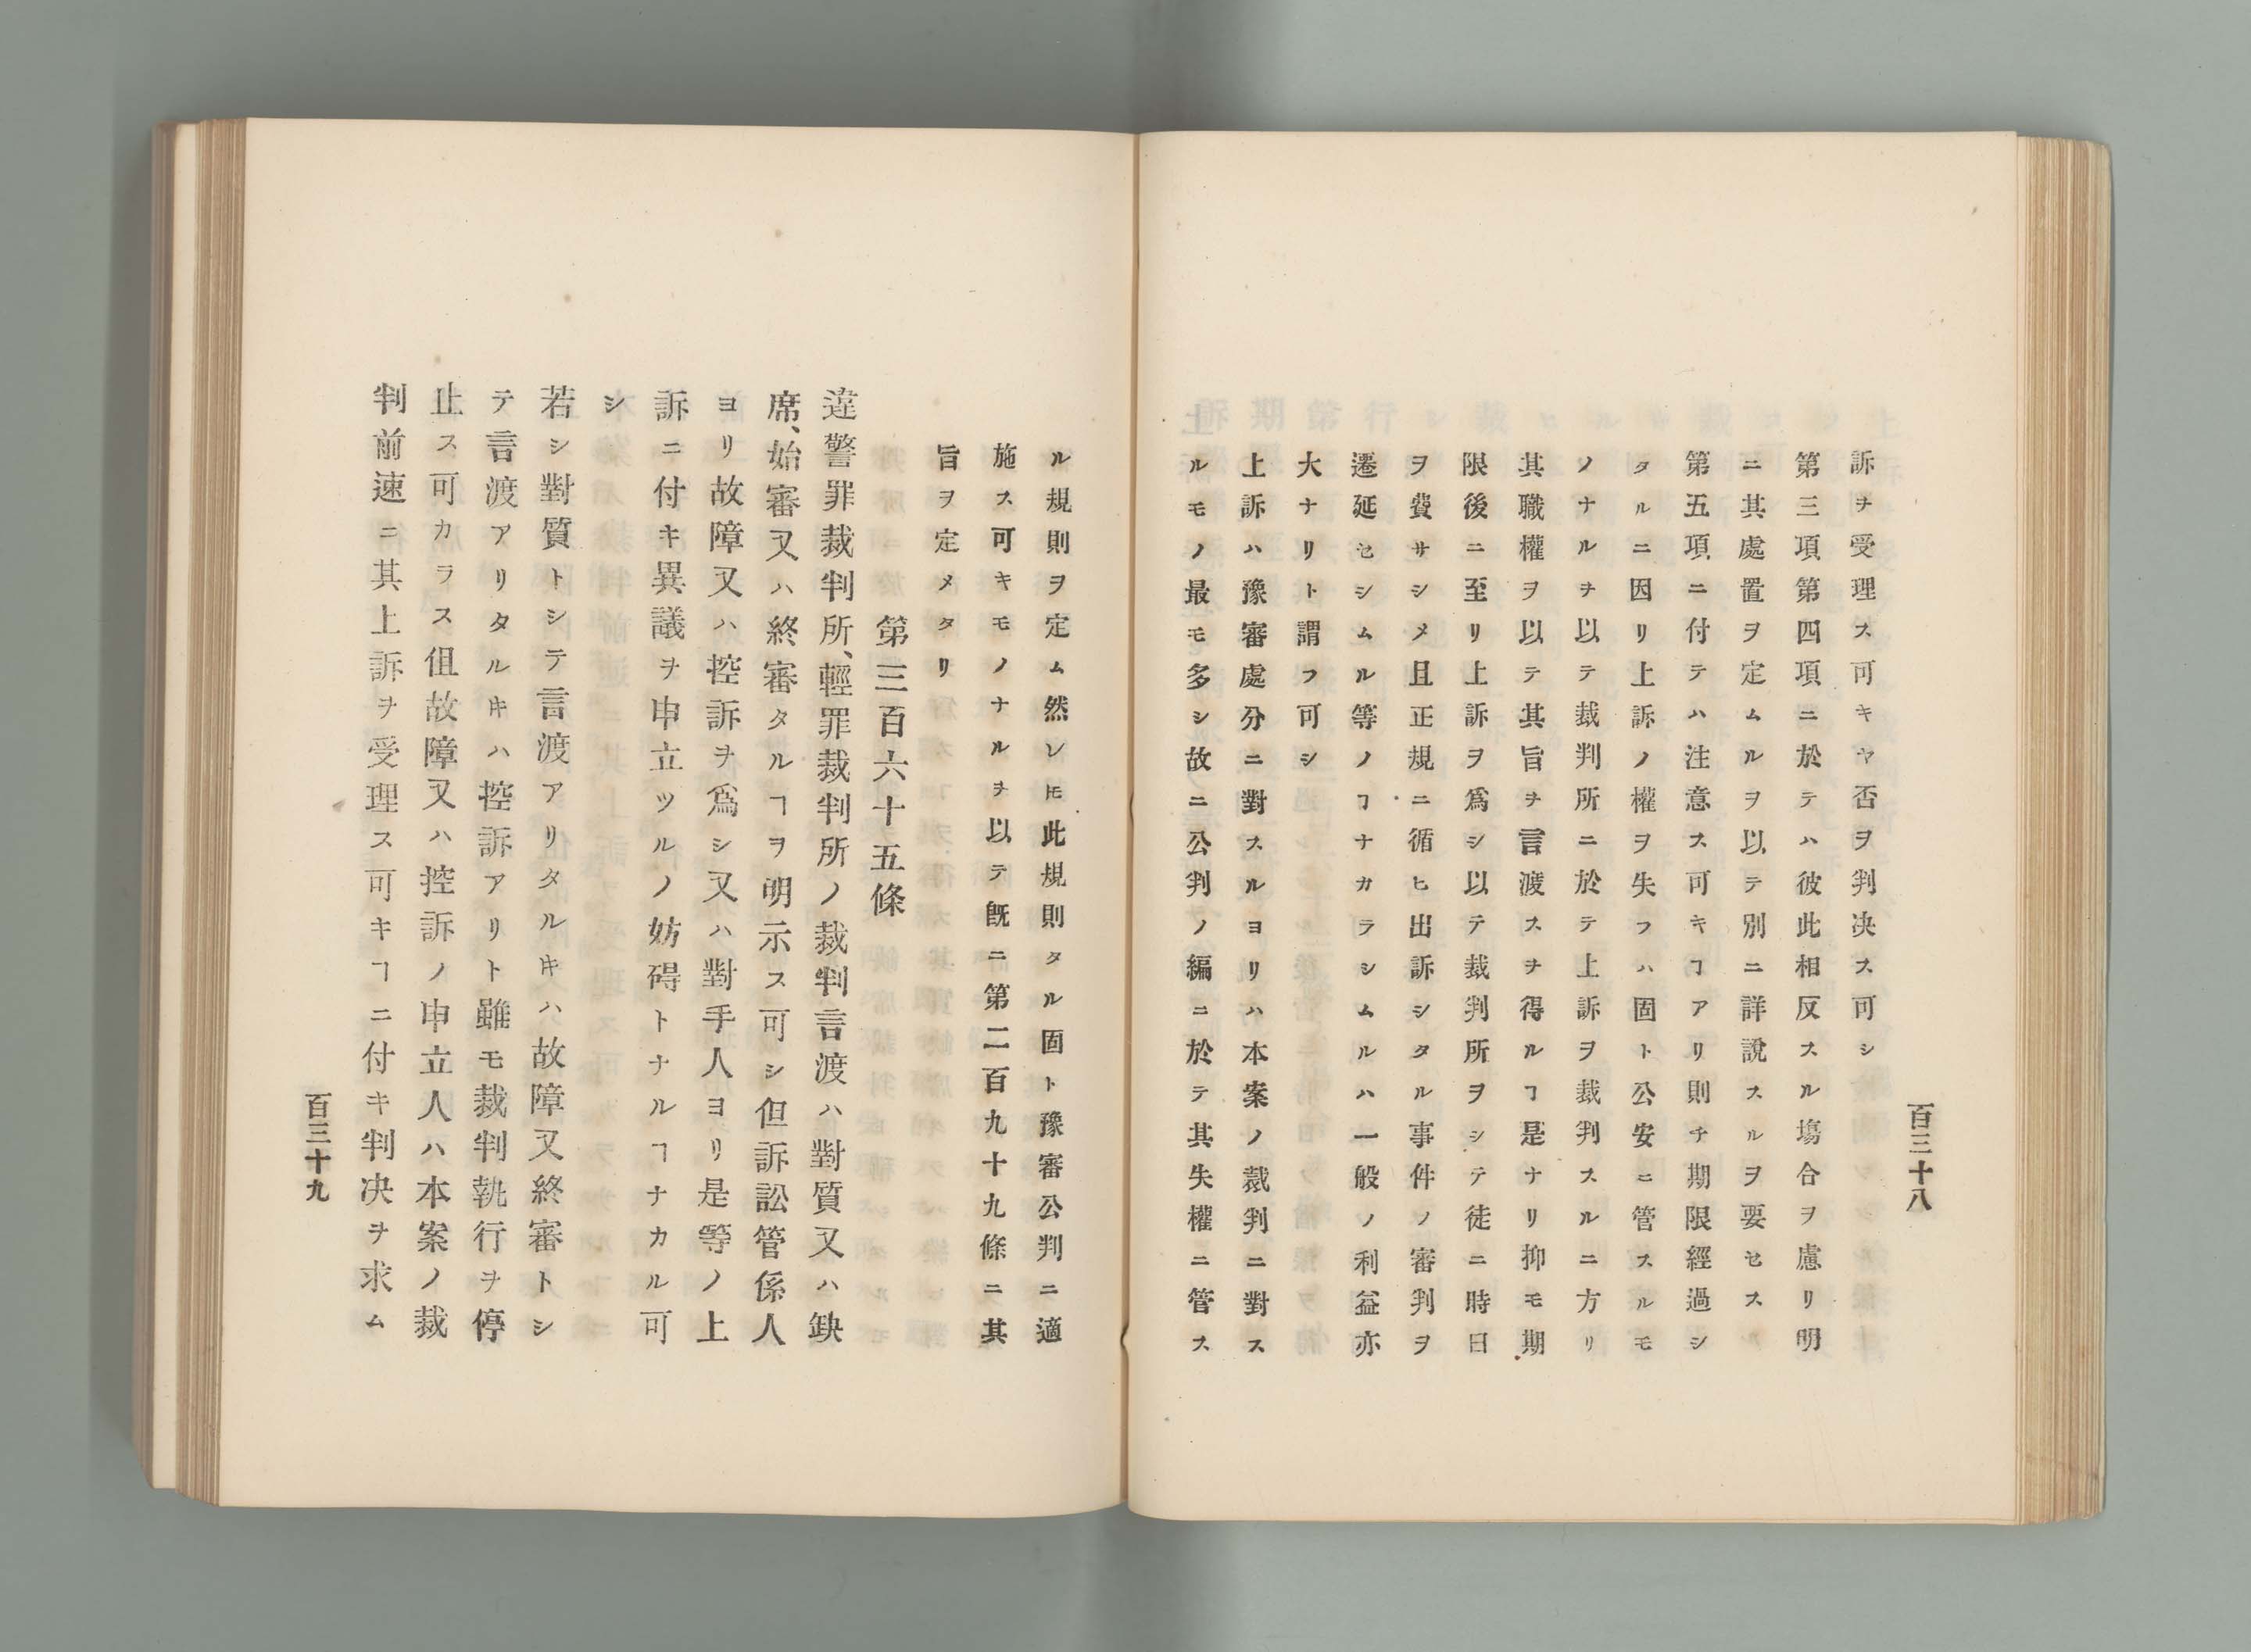 百三十八
訴ヲ受理ス可キヤ否ヲ判决ス可シ
第三項第四項ニ於テハ彼此相反スル塲合ヲ慮リ明
ニ其處置ヲ定ムルヲ以テ別ニ詳說スルヲ要セスル
第五項ニ付テハ注意ス可キヿアリ則チ期限經過シ
タルニ因リ上訴ノ權ヲ失フハ固ト公安ニ管スルモ
ノナルヲ以テ裁判所ニ於テ上訴ヲ裁判スルニ方リ
其職權ヲ以テ其旨ヲ言渡スヲ得ルヿ是ナリ抑モ期
限後ニ至リ上訴ヲ爲シ以テ裁判所ヲシテ徒ニ時日
ヲ費サシメ且正規ニ循ヒ出訴シタル事件ノ審判ヲ
遷延セシムル等ノヿナカラシムルハ一般ノ利益亦
大ナリト謂フ可シ
上訴ハ豫審處分ニ對スルヨリハ本案ノ裁判ニ對ス
ルモノ最モ多シ故ニ公判ノ編ニ於テ其失權ニ管ス
ル規則ヲ定ム然レ𪜈此規則タル固ト豫審公判ニ適
施ス可キモノナルヲ以テ旣ニ第二百九十九條ニ其
旨ヲ定メタリ
第三百六十五條
違警罪裁判所、輕罪裁判所ノ裁判言渡ハ對質又ハ缺
席、始審又ハ終審タルヿヲ明示ス可シ但訴訟管係人
ヨリ故障又ハ控訴ヲ爲シ又ハ對手人ヨリ是等ノ上
訴ニ付キ異議ヲ申立ツルノ妨碍トナルヿナカル可
シ
若シ對質トシテ言渡アリタル𪜈ハ故障又終審トシ
テ言渡アリタル𪜈ハ控訴アリト雖モ裁判執行ヲ停
止ス可カラス伹故障又ハ控訴ノ申立人ハ本案ノ裁
判前速ニ其上訴ヲ受理ス可キヿニ付キ判决ヲ求ム
百三十九